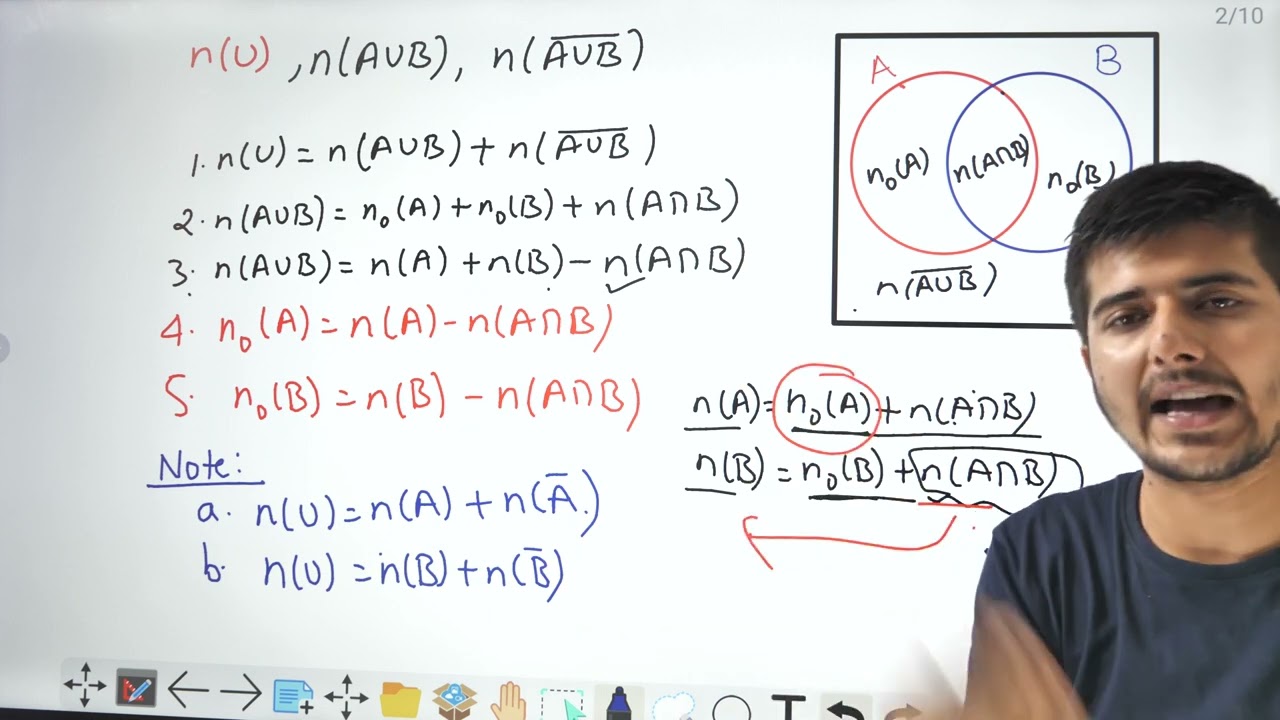 2/10
n(U), n(A∪B), n(A∪B̅)
1. n(U) = n(A∪B) + n(A̅∪̅B̅)
2. n(A∪B) = n₀(A) + n₀(B) + n(A∩B)
3. n(A∪B) = n(A) + n(B) − n(A∩B)
4. n₀(A) = n(A) − n(A∩B)
5. n₀(B) = n(B) − n(A∩B)
Note:
a. n(U) = n(A) + n(A̅)
b. n(U) = n(B) + n(B̅)
A B
n₀(A) n(A∩B) n₀(B)
n(A̅∪̅B̅)
n(A) = n₀(A) + n(A∩B)
n(B) = n₀(B) + n(A∩B)
T